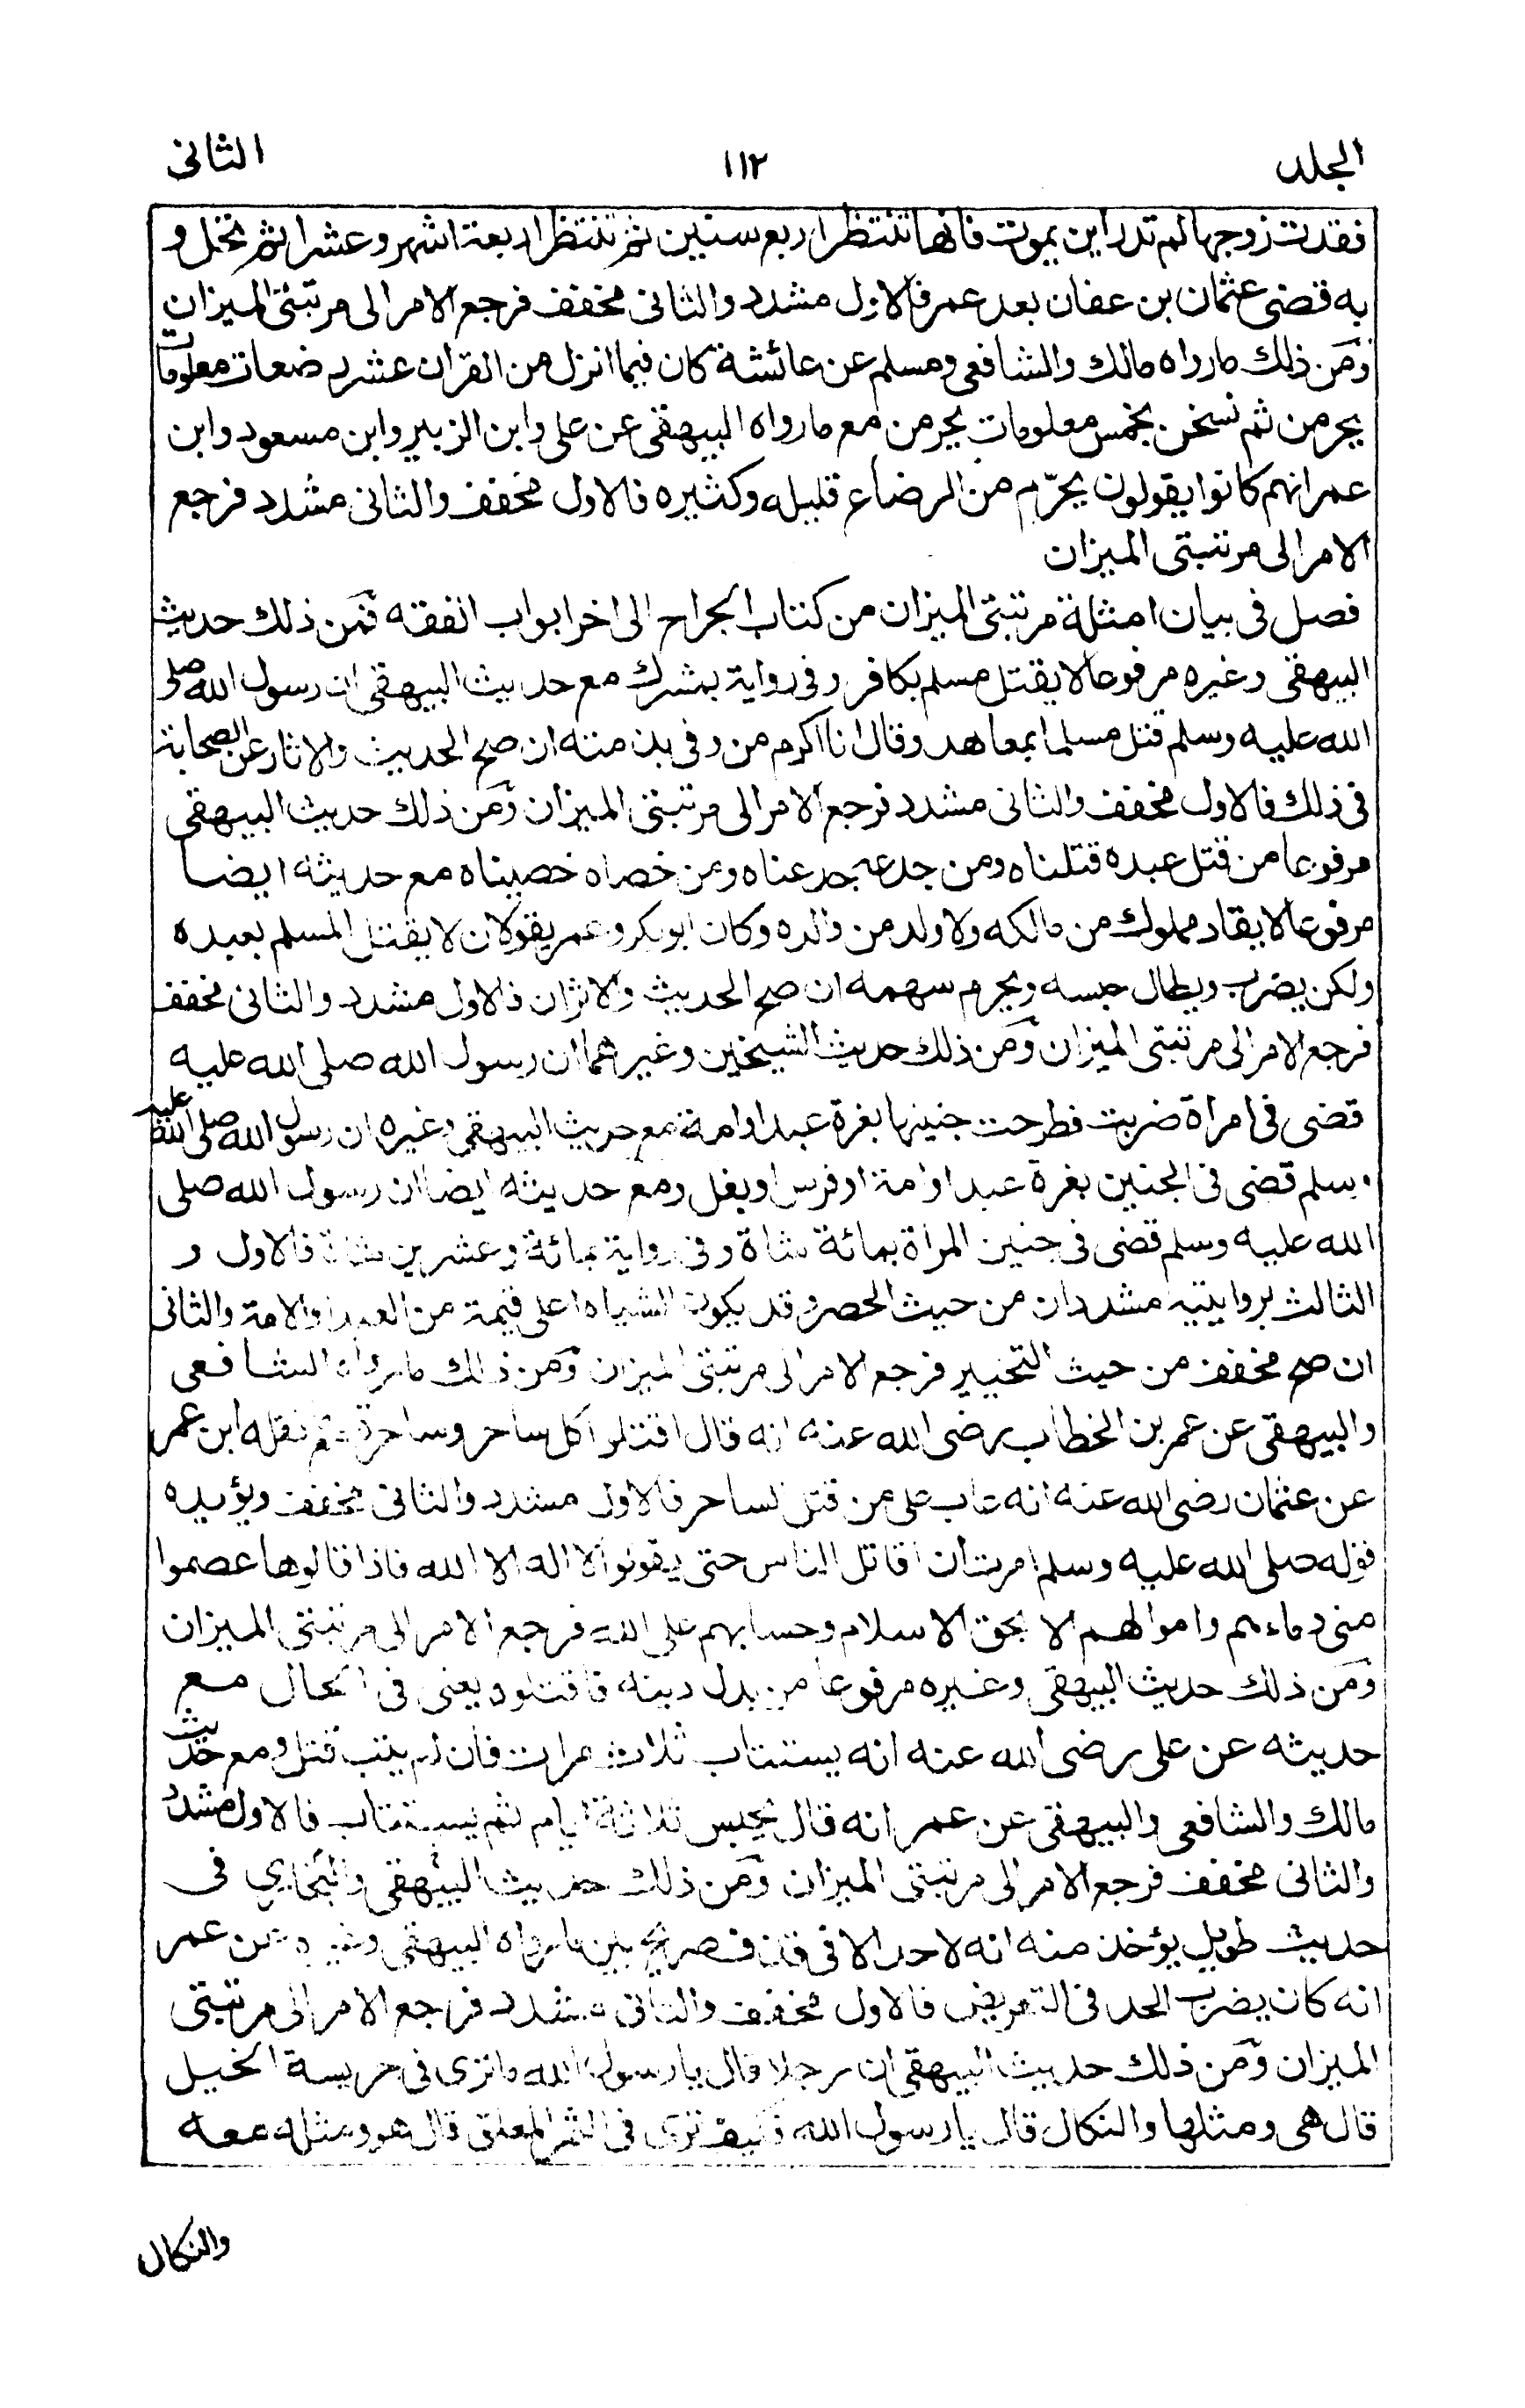 الجلد ١١٢ الثانى
فقدت زوجها لم تدر اين يموت فانها تنتظر اربع سنين ثم تنتظر اربعة اشهر وعشرا ثم تحل و
به قضى عثمان بن عفان بعد عمر فالاول مشدد والثانى مخفف فرجع الامر الى مرتبتى الميزان
ومن ذلك مارواه مالك والشافعى ومسلم عن عائشة كان فيما انزل من القران عشر رضعات معلومات
يحرمن ثم نسخن بخمس معلومات يحرمن مع مارواه البيهقى عن على وابن الزبير وابن مسعود وابن
عمر انهم كانوا يقولون يحرّم من الرضاع قليله وكثيره فالاول مخفف والثانى مشدد فرجع
الامر الى مرتبتى الميزان
فصل فى بيان امثلة مرتبتى الميزان من كتاب الجراح الى اخر ابواب الفقه فمن ذلك حديث
البيهقى وغيره مرفوعا لا يقتل مسلم بكافر وفى رواية بمشرك مع حديث البيهقى ان رسول الله صلى
الله عليه وسلم قتل مسلما بمعاهد وقال انا اكرم من وفى بذمته ان صح الحديث والاثار عن الصحابة
فى ذلك فالاول مخفف والثانى مشدد فرجع الامر الى مرتبتى الميزان ومن ذلك حديث البيهقى
مرفوعا من قتل عبده قتلناه ومن جدعه جدعناه ومن خصاه خصيناه مع حديثه ايضا
مرفوعا لا يقاد مملوك من مالكه ولا ولد من والده وكان ابوبكر وعمر يقولان لا يقتل المسلم بعبده
ولكن يضرب ويطال حبسه ويحرم سهمه ان صح الحديث والاثران فالاول مشدد والثانى مخفف
فرجع الامر الى مرتبتى الميزان ومن ذلك حديث الشيخين وغيرهما ان رسول الله صلى الله عليه
قضى فى امراة ضربت فطرحت جنينها بغرة عبد او امة مع حديث البيهقى وغيره ان رسول الله صلى الله عليه
وسلم قضى فى الجنين بغرة عبد او امة او فرس او بغل ومع حديثه ايضا ان رسول الله صلى
الله عليه وسلم قضى فى جنين المراة بمائة شاة وفى رواية بمائة وعشرين شاة فالاول و
الثالث بروايتيه مشددان من حيث الحصر وقد يكون الشياه اعلى قيمة من العبد والامة والثانى
ان صح مخفف من حيث التخيير فرجع الامر الى مرتبتى الميزان ومن ذلك مارواه الشافعى
والبيهقى عن عمر بن الخطاب رضى الله عنه انه قال اقتلوا كل ساحر وساحرة نقله ابن عمر
عن عثمان رضى الله عنه انه عاب على من قتل الساحر فالاول مشدد والثانى مخفف ويؤيده
قوله صلى الله عليه وسلم امرت ان اقاتل الناس حتى يقولوا لا اله الا الله فاذا قالوها عصموا
منى دماءهم واموالهم الا بحق الاسلام وحسابهم على الله فرجع الامر الى مرتبتى الميزان
ومن ذلك حديث البيهقى وغيره مرفوعا من بدل دينه فاقتلوه يعنى فى الحال مع
حديثه عن على رضى الله عنه انه يستتاب ثلاث مرات فان لم يتب قتل ومع حديث
مالك والشافعى والبيهقى عن عمر انه قال يحبس ثلاثة ايام ثم يستتاب فالاول مشدد
والثانى مخفف فرجع الامر الى مرتبتى الميزان ومن ذلك حديث البيهقى والبخاري فى
حديث طويل يؤخذ منه انه لا حد الا فى قذف صريح بين مارواه البيهقى وغيره عن عمر
انه كان يضرب الحد فى التعريض فالاول مخفف والثانى مشدد فرجع الامر الى مرتبتى
الميزان ومن ذلك حديث البيهقى ان رجلا قال يا رسول الله ما ترى فى حريسة الخيل
قال هى ومثلها والنكال قال يا رسول الله فكيف ترى فى الثمر المعلق قال هو ومثله معه
والنكال